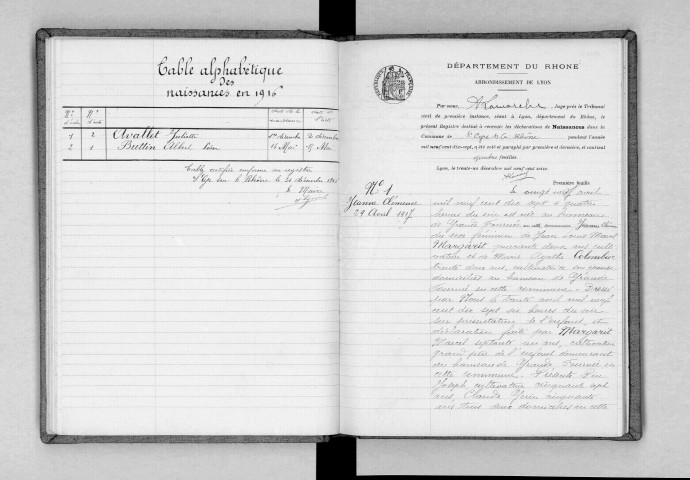 Table alphabétique
des
naissances en 1916
Nos
Nos
Date de la naissance
1 2 Avallet Juliette 1er décembre 2 décembre
2 1 Buttin Albert 16 Mai 17 Mai
Table certifiée conforme au registre
le 31 décembre 1916
le Maire
DÉPARTEMENT DU RHONE
ARRONDISSEMENT DE LYON
Par nous, Juge près le Tribunal
civil de première instance, séant à Lyon, département du Rhône, le
présent Registre destiné à recevoir les déclarations de Naissances dans la
Commune de St Cyr s/ le Rhône pendant l'année
mil neuf cent dix-sept, a été coté et paraphé par première et dernière, et contient
feuilles.
Lyon, le trente-un décembre mil neuf cent seize.
Première feuille
No 1
Jeanne Clémence
29 Avril 1917
Le vingt neuf avril
mil neuf cent dix sept à quatre
heures du soir est née au hameau
de Grande Fournée en cette commune Jeanne Clémence
du sexe féminin de Jean Louis Marcel
Margarit quarante deux ans, culti
vateur et de Marie Agathe Colombier
trente deux ans, cultivatrice son épouse
domiciliés au hameau de Grande
Fournée en cette commune. Dressé
par Nous le trente avril mil neuf
cent dix sept six heures du soir
sur présentation de l'enfant et
déclaration faite par Margarit
Marcel septante un ans, cultivateur
grand père de l'enfant demeurant
au hameau de Grande Fournée en
cette commune. Présents
Joseph cultivateur cinquante sept
ans, Claude cinquante
ans tous deux domiciliés en cette